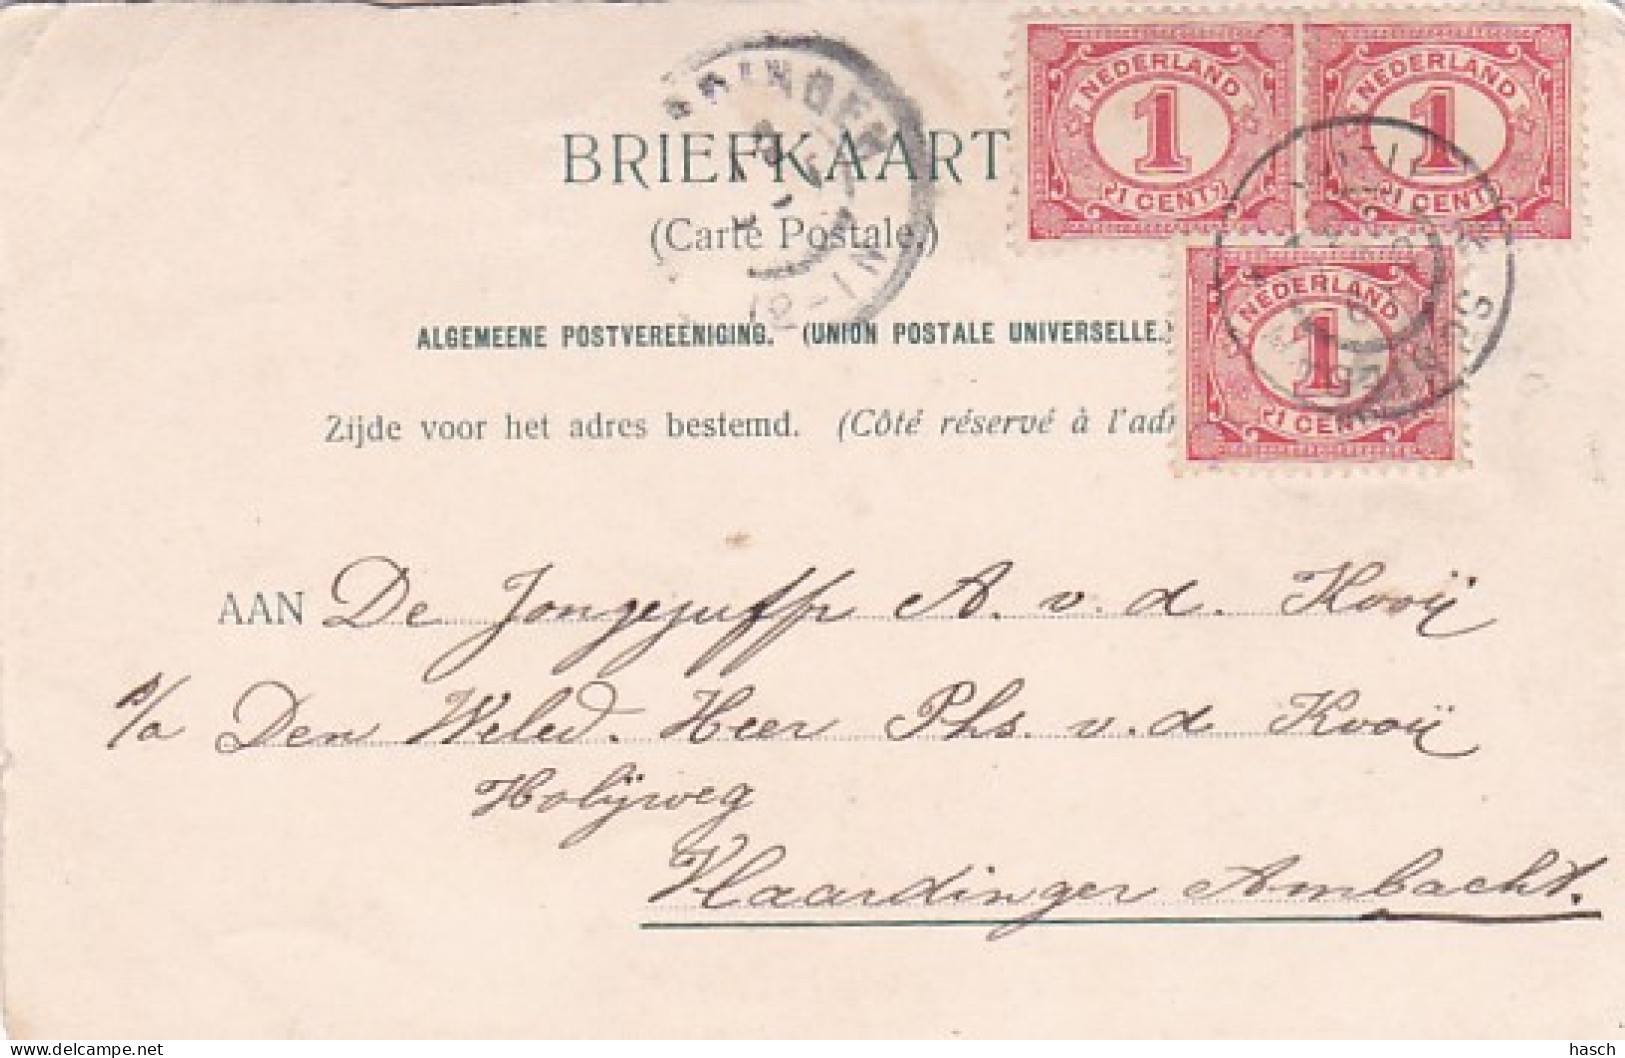 NEDERLAND
1
1 CENT
NEDERLAND
1
1 CENT
BRIEFKAART
(Carte Postale.)
12-1N
NEDERLAND
1
1 CENT
ALGEMEENE POSTVEREENIGING. (UNION POSTALE UNIVERSELLE.)
Zijde voor het adres bestemd. (Côté réservé à l'adr
AAN De Jongejuffr A. v. d. Kooij
p/a Den Weled. Heer Phs. v. d Kooij
Holijweg
Vlaardinger Ambacht.
hasch